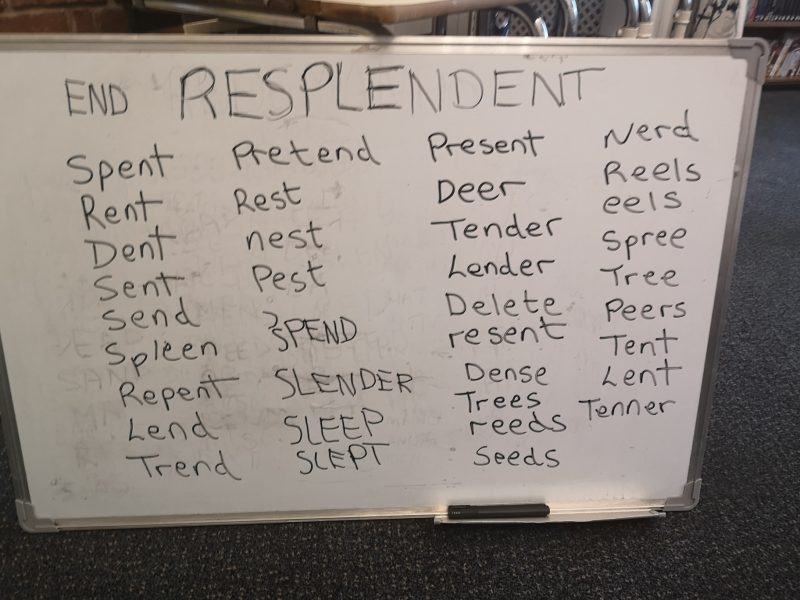 END RESPLENDENT
Spent
Rent
Dent
Sent
Send
Spleen
Repent
Lend
Trend
Pretend
Rest
nest
Pest
SPEND
SLENDER
SLEEP
SLEPT
Present
Deer
Tender
Lender
Delete
resent
Dense
Trees
reeds
Seeds
Nerd
Reels
eels
Spree
Tree
Peers
Tent
Lent
Tenner